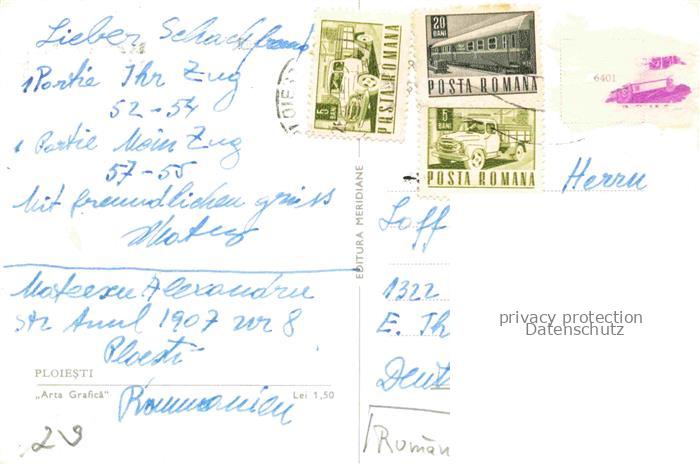 Lieber Schachfreund
1 Partie Ihr Zug
52 - 54
1 Partie Mein Zug
57 - 55
Mit freundlichen grüss
Mateescu Alexandru
str Anul 1907 nr 8
Ploesti
Rommanien
PLOIEȘTI
„Arta Grafică”
Lei 1,50
29
EDITURA MERIDIANE
5 BANI
POSTA ROMANA
20 BANI
POSTA ROMANA
5 BANI
POSTA ROMANA
6401
Herrn
Loff
1322
E. Th
Deut
Român
privacy protection
Datenschutz